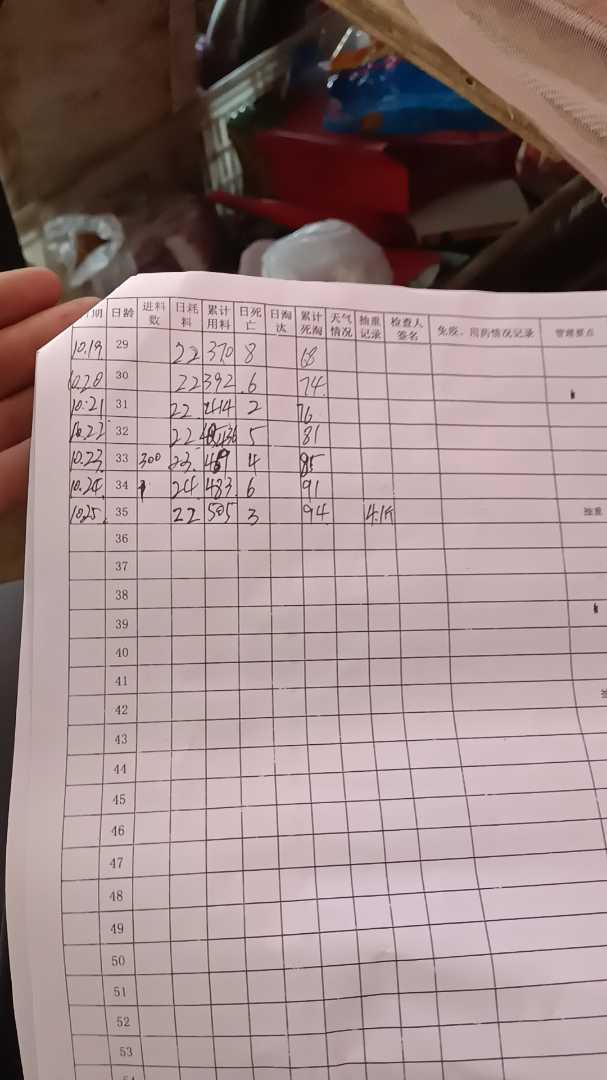 期 日龄 进料数 日耗料 累计用料 日死亡 日淘汰 累计死淘 天气情况 抽重记录 检查人签名 免疫、用药情况记录 管理要点
10.19 29 22 370 8 68
10.20 30 22 392 6 74
10.21 31 22 414 2 76
10.22 32 22 436 5 81
10.23 33 300 23 459 4 85
10.24 34 24 483 6 91
10.25 35 22 505 3 94 4.1斤 抽重
36
37
38
39
40
41
42
43
44
45
46
47
48
49
50
51
52
53